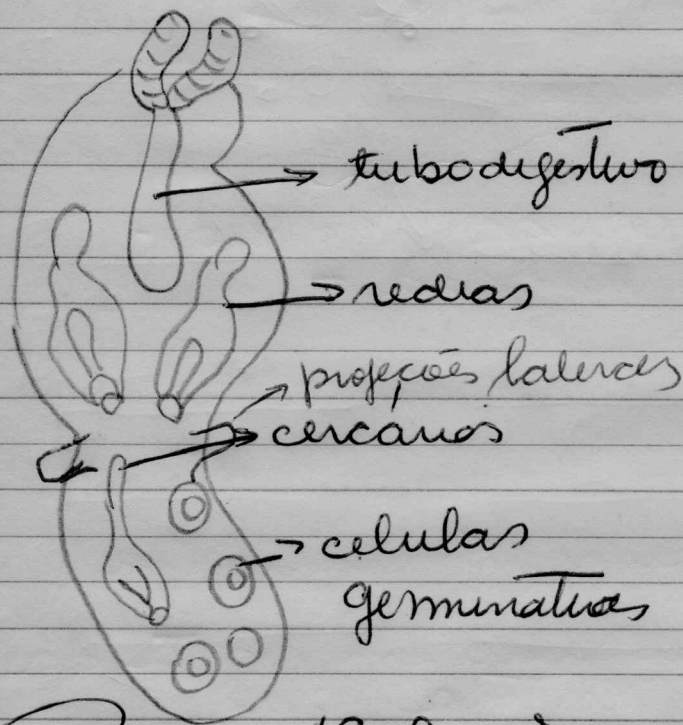 tubo digestivo
redias
projeções laterais
cercárias
celulas
germinativas